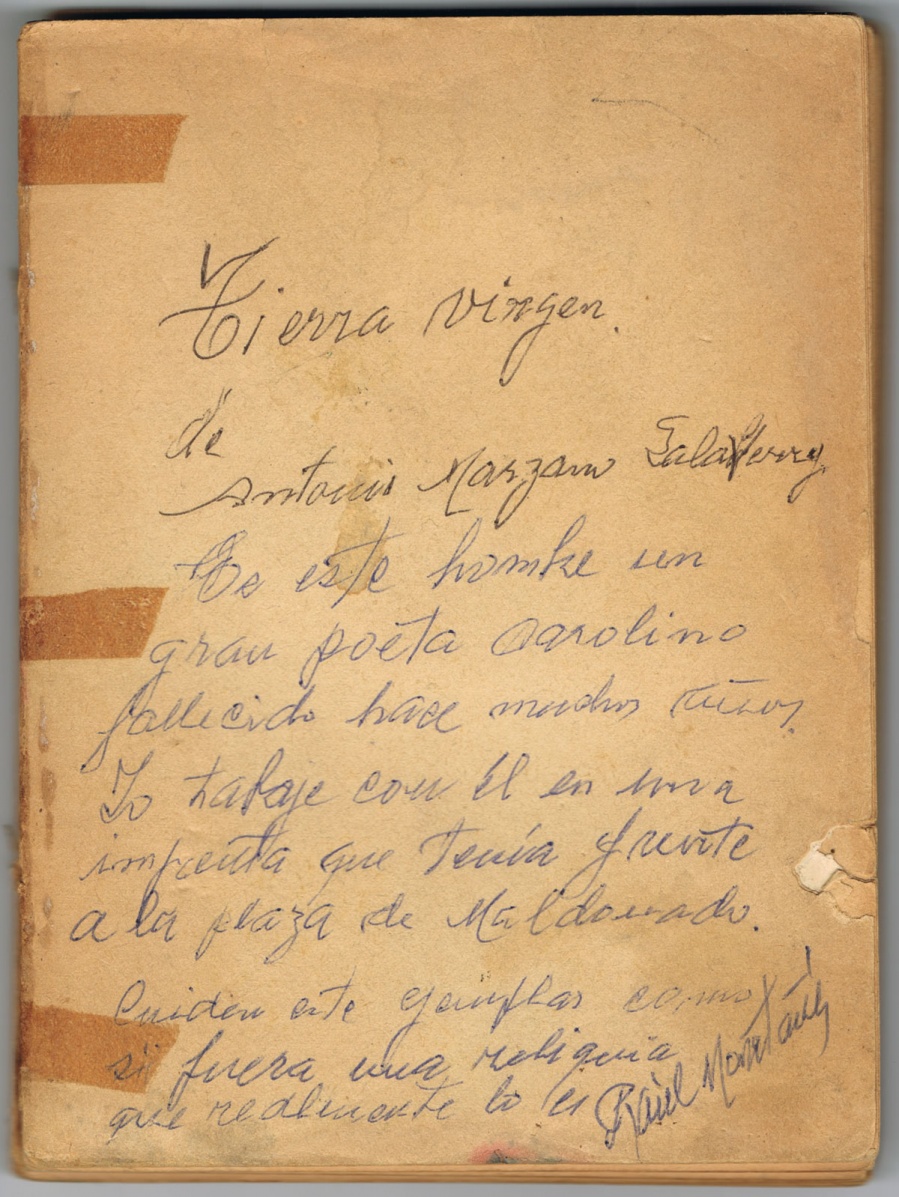 Tierra virgen.
de
Antonio Marzano Salaverry
Es este hombre un
gran poeta Carolino
fallecido hace muchos años.
Yo trabaje con él en una
imprenta que tenía frente
a la plaza de Maldonado.
Cuiden este ejemplar como
si fuera una reliquia
que realmente lo es
Raúl Montañés